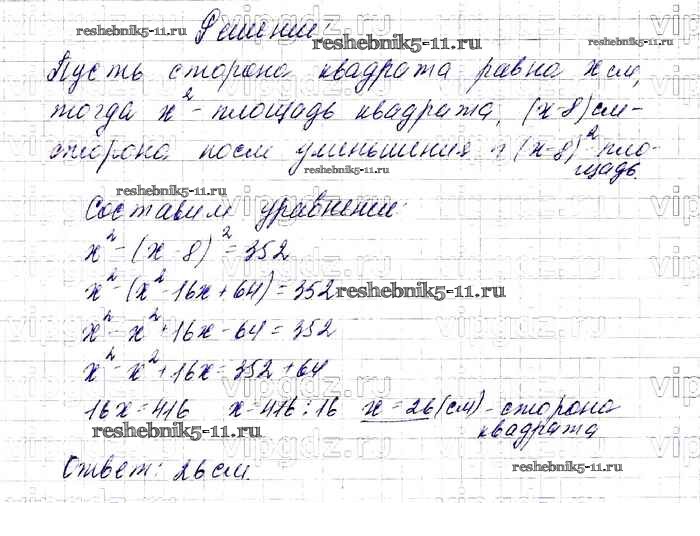 Решение:
Пусть сторона квадрата равна x см,
тогда x² - площадь квадрата, (x-8) см -
сторона после уменьшения и (x-8)² - пло-
щадь.
Составим уравнение:
x² - (x - 8)² = 352
x² - (x² - 16x + 64) = 352
x² - x² + 16x - 64 = 352
x² - x² + 16x = 352 + 64
16x = 416 x = 416 : 16 x = 26 (см) - сторона
квадрата
Ответ: 26 см.
reshebnik5-11.ru
reshebnik5-11.ru
reshebnik5-11.ru
reshebnik5-11.ru
reshebnik5-11.ru
reshebnik5-11.ru
reshebnik5-11.ru
vipgdz.ru